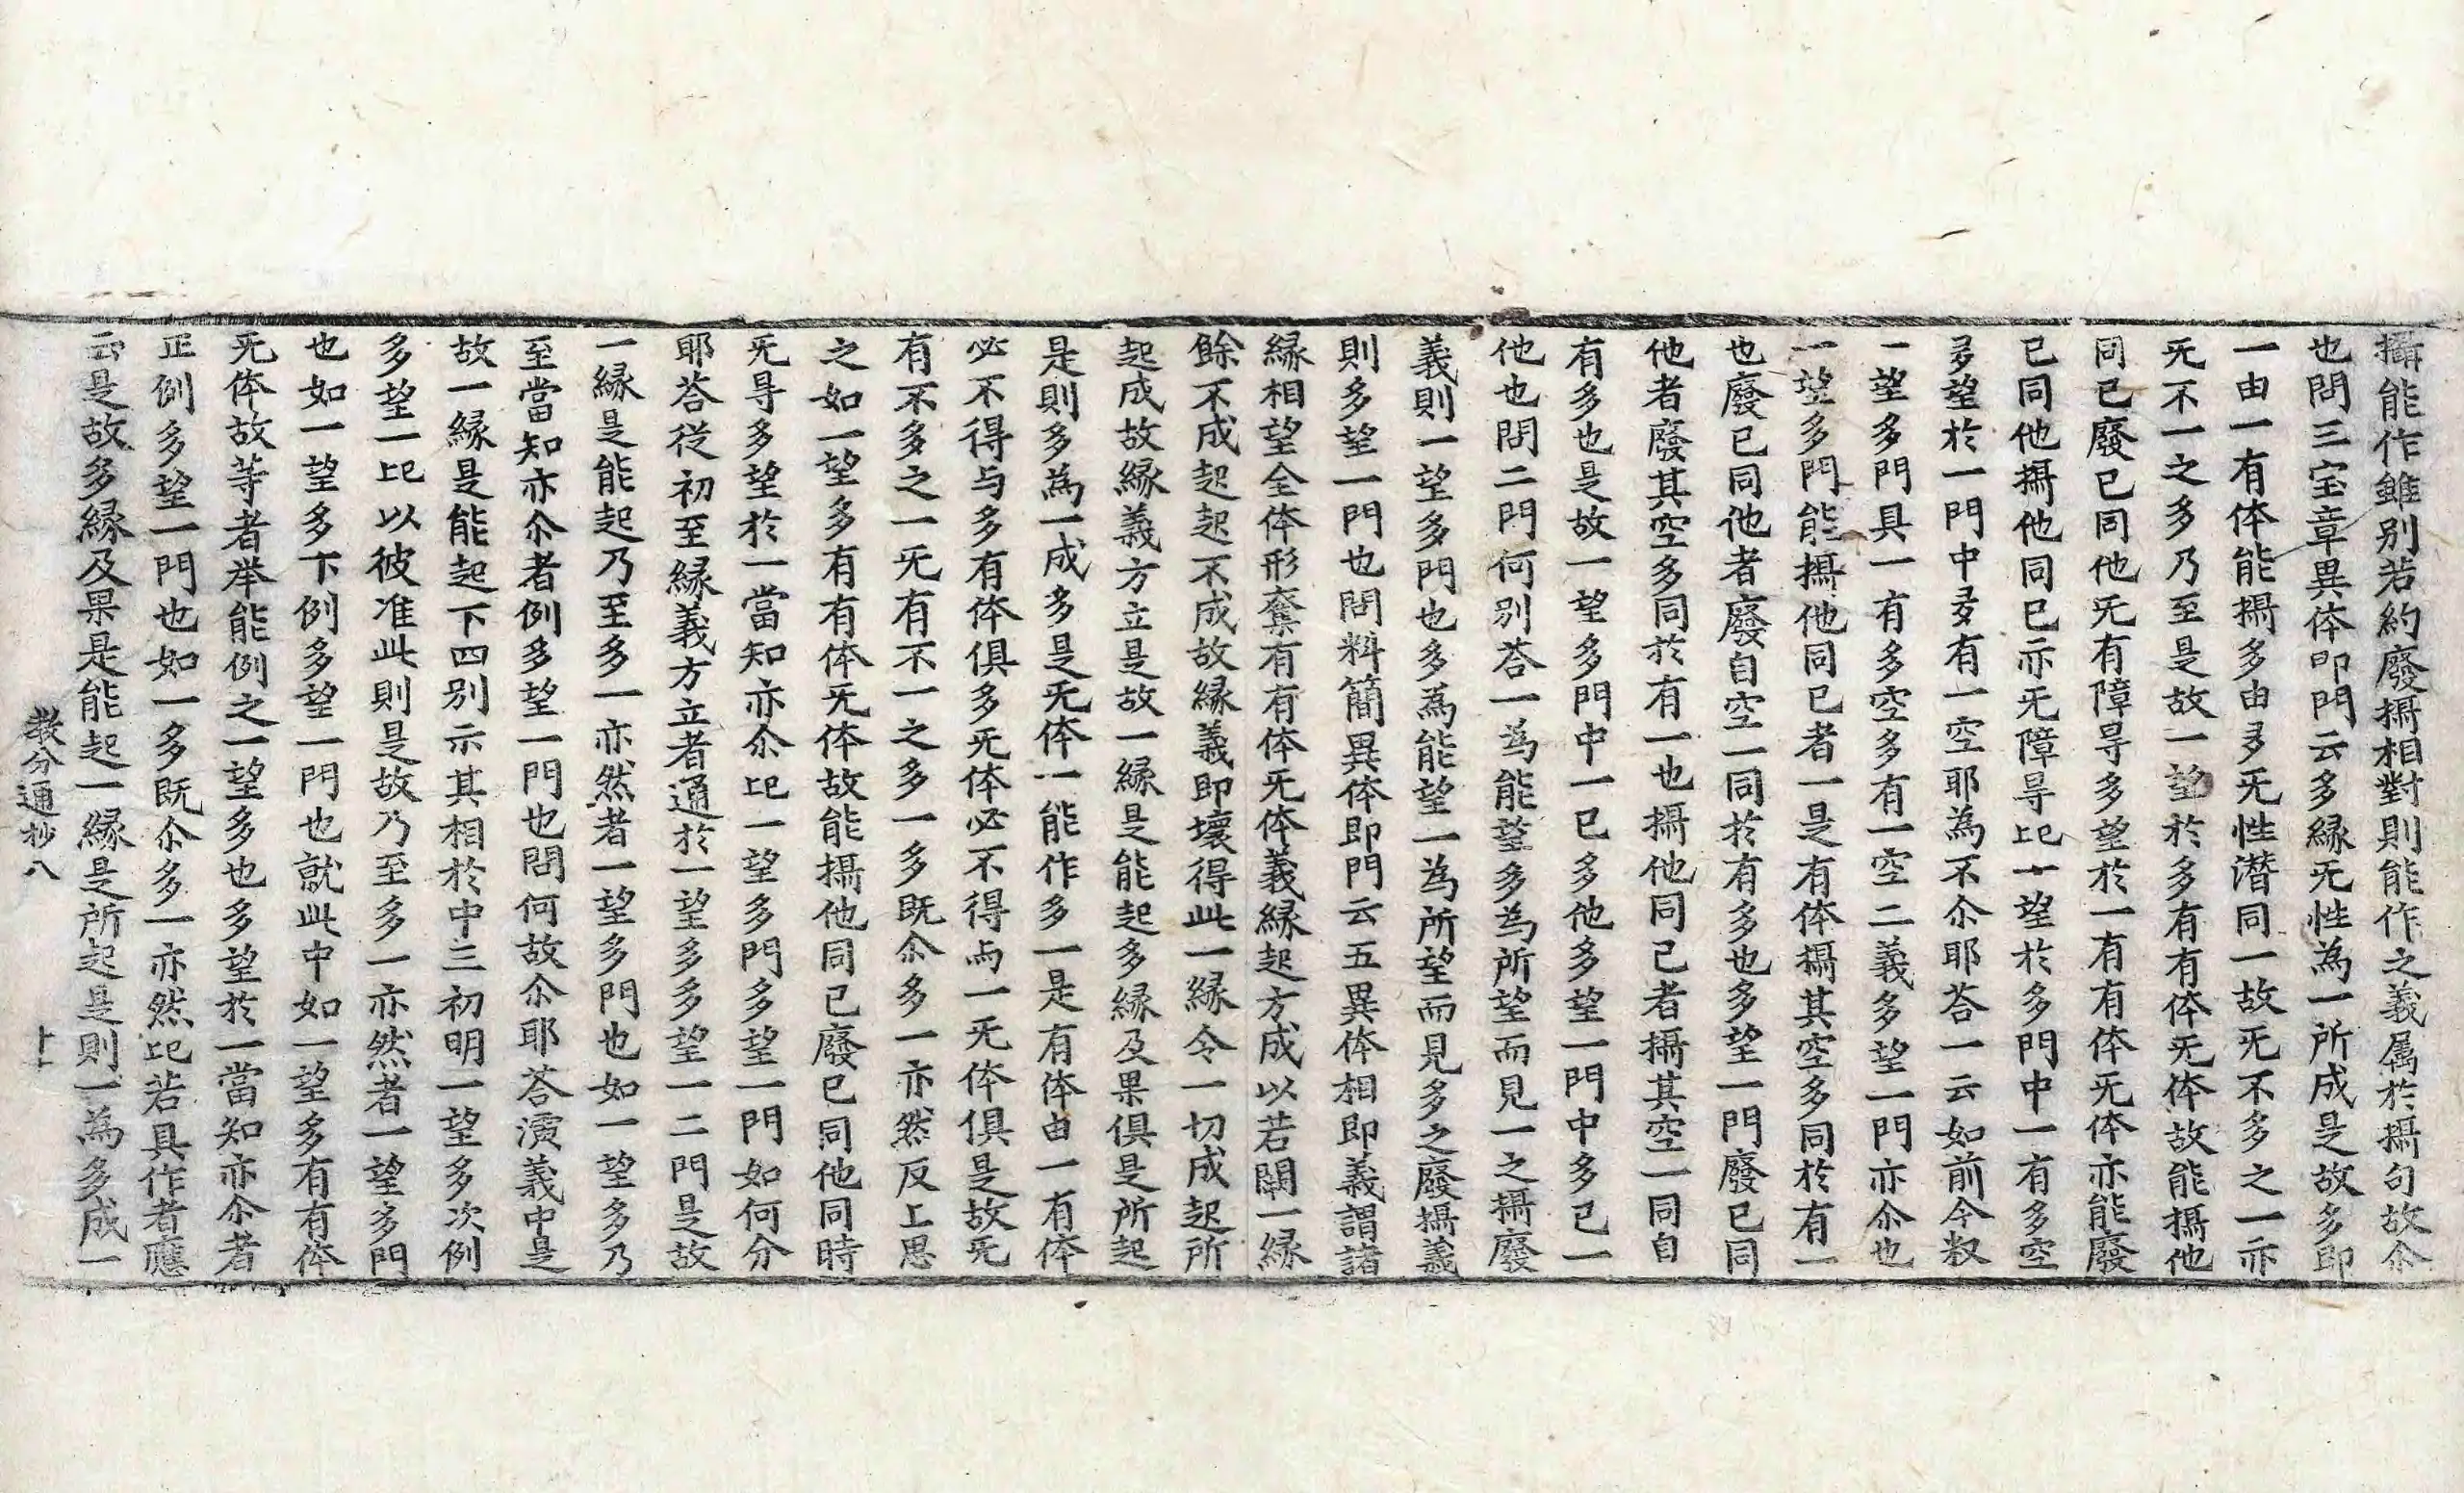 攝能作雖别若約廢攝相對則能作之義属於攝句故尒
也問三宝章異体即門云多緣无性為一所成是故多即
一由一有体能攝多由多无性潜同一故无不多之一亦
无不一之多乃至是故一望於多有有体无体故能攝他
同己廢己同他无有障㝵多望於一有有体无体亦能廢
己同他攝他同己亦无障㝵比一望於多門中一有多空
多望於一門中多有一空耶為不尒耶荅一云如前今叙
一望多門具一有多空多有一空二義多望一門亦尒也
一望多門能攝他同己者一是有体攝其空多同於有一
也廢己同他者廢自空一同於有多也多望一門廢己同
他者廢其空多同於有一也攝他同己者攝其空一同自
有多也是故一望多門中一己多他多望一門中多己一
他也問二門何别荅一為能望多為所望而見一之攝廢
義則一望多門也多為能望一為所望而見多之廢攝義
則多望一門也問料簡異体即門云五異体相即義謂諸
緣相望全体形奪有有体无体義緣起方成以若闕一緣
餘不成起起不成故緣義即壞得此一緣令一切成起所
起成故緣義方立是故一緣是能起多緣及果俱是所起
是則多為一成多是无体一能作多一是有体由一有体
必不得与多有体俱多无体必不得与一无体俱是故无
有不多之一无有不一之多一多既尒多一亦然反上思
之如一望多有有体无体故能攝他同己廢己同他同時
无㝵多望於一當知亦尒比一望多門多望一門如何分
耶荅從初至緣義方立者通於一望多多望一二門是故
一緣是能起乃至多一亦然者一望多門也如一望多乃
至當知亦尒者例多望一門也問何故尒耶荅瀆義中是
故一緣是能起下四别示其相於中三初明一望多次例
多望一比以彼准此則是故乃至多一亦然者一望多門
也如一望多下例多望一門也就此中如一望多有有体
无体故等者举能例之一望多也多望於一當知亦尒者
正例多望一門也如一多既尒多一亦然比若具作者應
云是故多緣及果是能起一緣是所起是則一為多成一
教分通抄八 十一